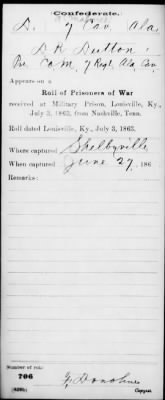 Confederate.
D. 7 Cav. Ala.
D R Dutton
Pvt Co M, 7 Regt. Ala. Cav
Appears on a
Roll of Prisoners of War
received at Military Prison, Louisville, Ky.,
July 3, 1863, from Nashville, Tenn.
Roll dated Louisville, Ky., July 3, 1863.
Where captured Shelbyville
When captured June 27, 186
Remarks:
Number of roll:
706
Donohue
Copyist.